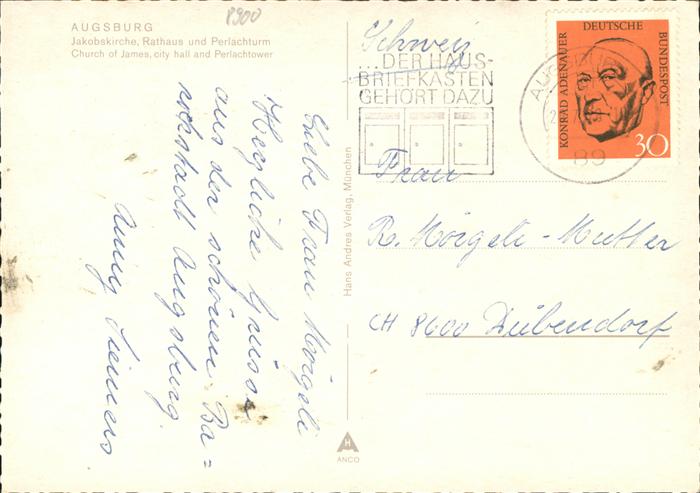 8900
AUGSBURG
Jakobskirche, Rathaus und Perlachturm
Church of James, city hall and Perlachtower
Liebe Frau Mörgeli
Herzliche Grüsse
aus der schönen Ba=
rockstadt Augsburg.
Anny
Hans Andres Verlag, München
ANCO
Schweiz
...DER HAUS-
BRIEFKASTEN
GEHÖRT DAZU
AUGSBURG
89
DEUTSCHE
BUNDESPOST
KONRAD ADENAUER
30
Frau
R. Mörgeli-Mutter
CH 8600 Dübendorf